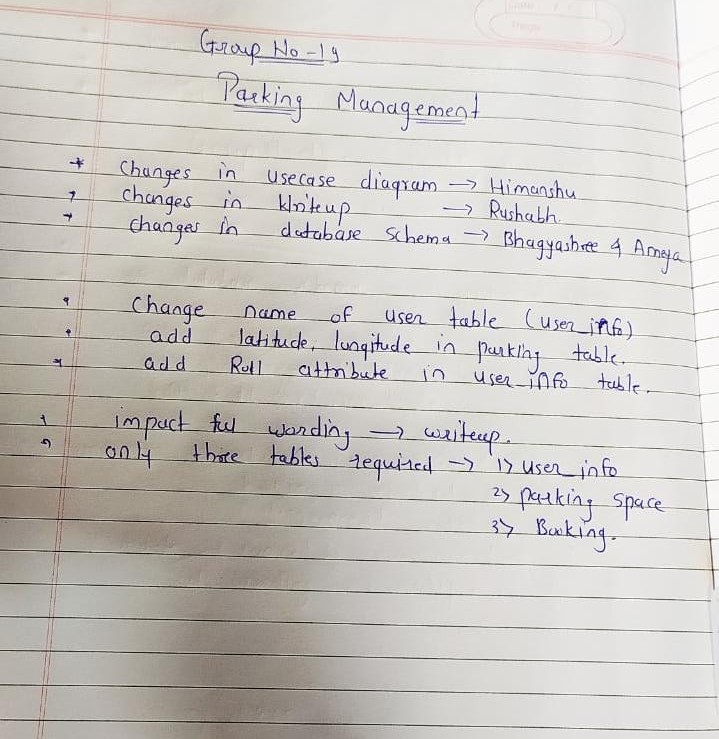 Group No - 19
Parking Management
* Changes in usecase diagram → Himanshu
* changes in Writeup → Rushabh.
* changes in database schema → Bhagyashree & Ameya
* Change name of user table (user_info)
* add latitude, longitude in parking table.
* add Roll attribute in user_info table.
* impact ful wording → writeup.
* only three tables required → 1> user_info
2> parking space
3> Booking.